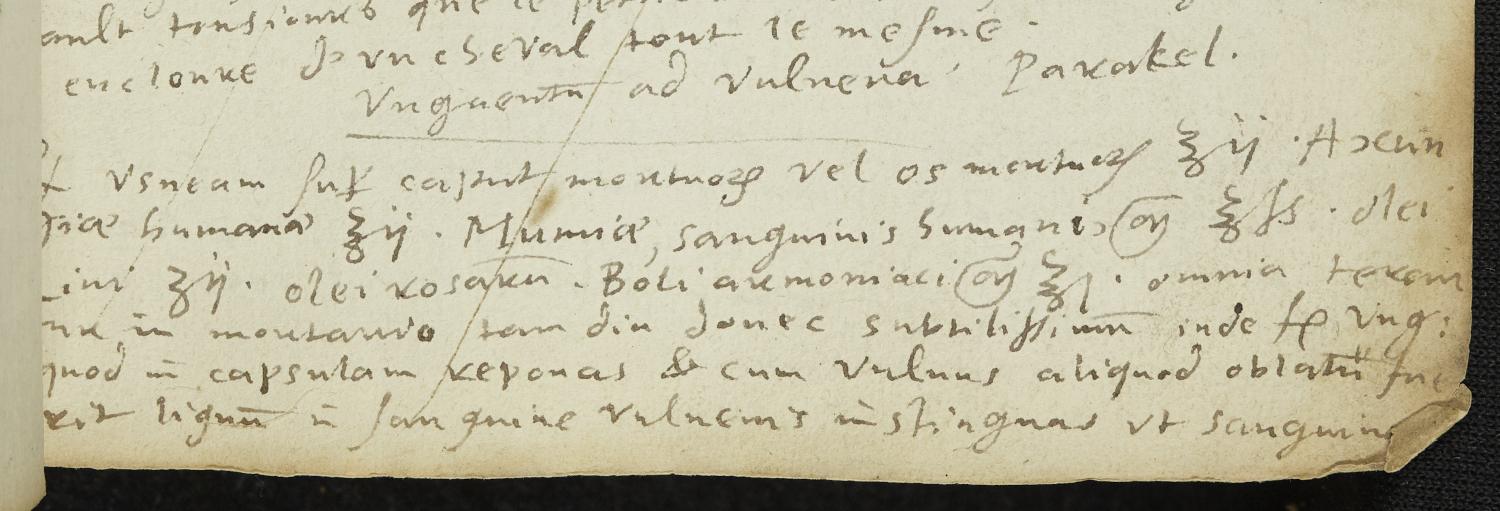 ault tonsiones que le
encloure d'un cheval tout le mesme.
Vnguentū ad vulnera Parakel.
℞ vsneam sup caput mortuoꝝ vel os mortuoꝝ ℥ij. Axun
giæ humanæ ℥ij. Mumiæ, sanguinis humani, an ℥ſs. olei
Lini ℥ij. olei rosarū. Boli armoniaci an ℥j. omnia teran
tur in mortario tam diu donec subtilissimū inde f. vng:
quod in capsulam reponas & cum vulnus aliquod oblatū fue
rit lignū ī sanguine vulneris instinguas vt sanguine